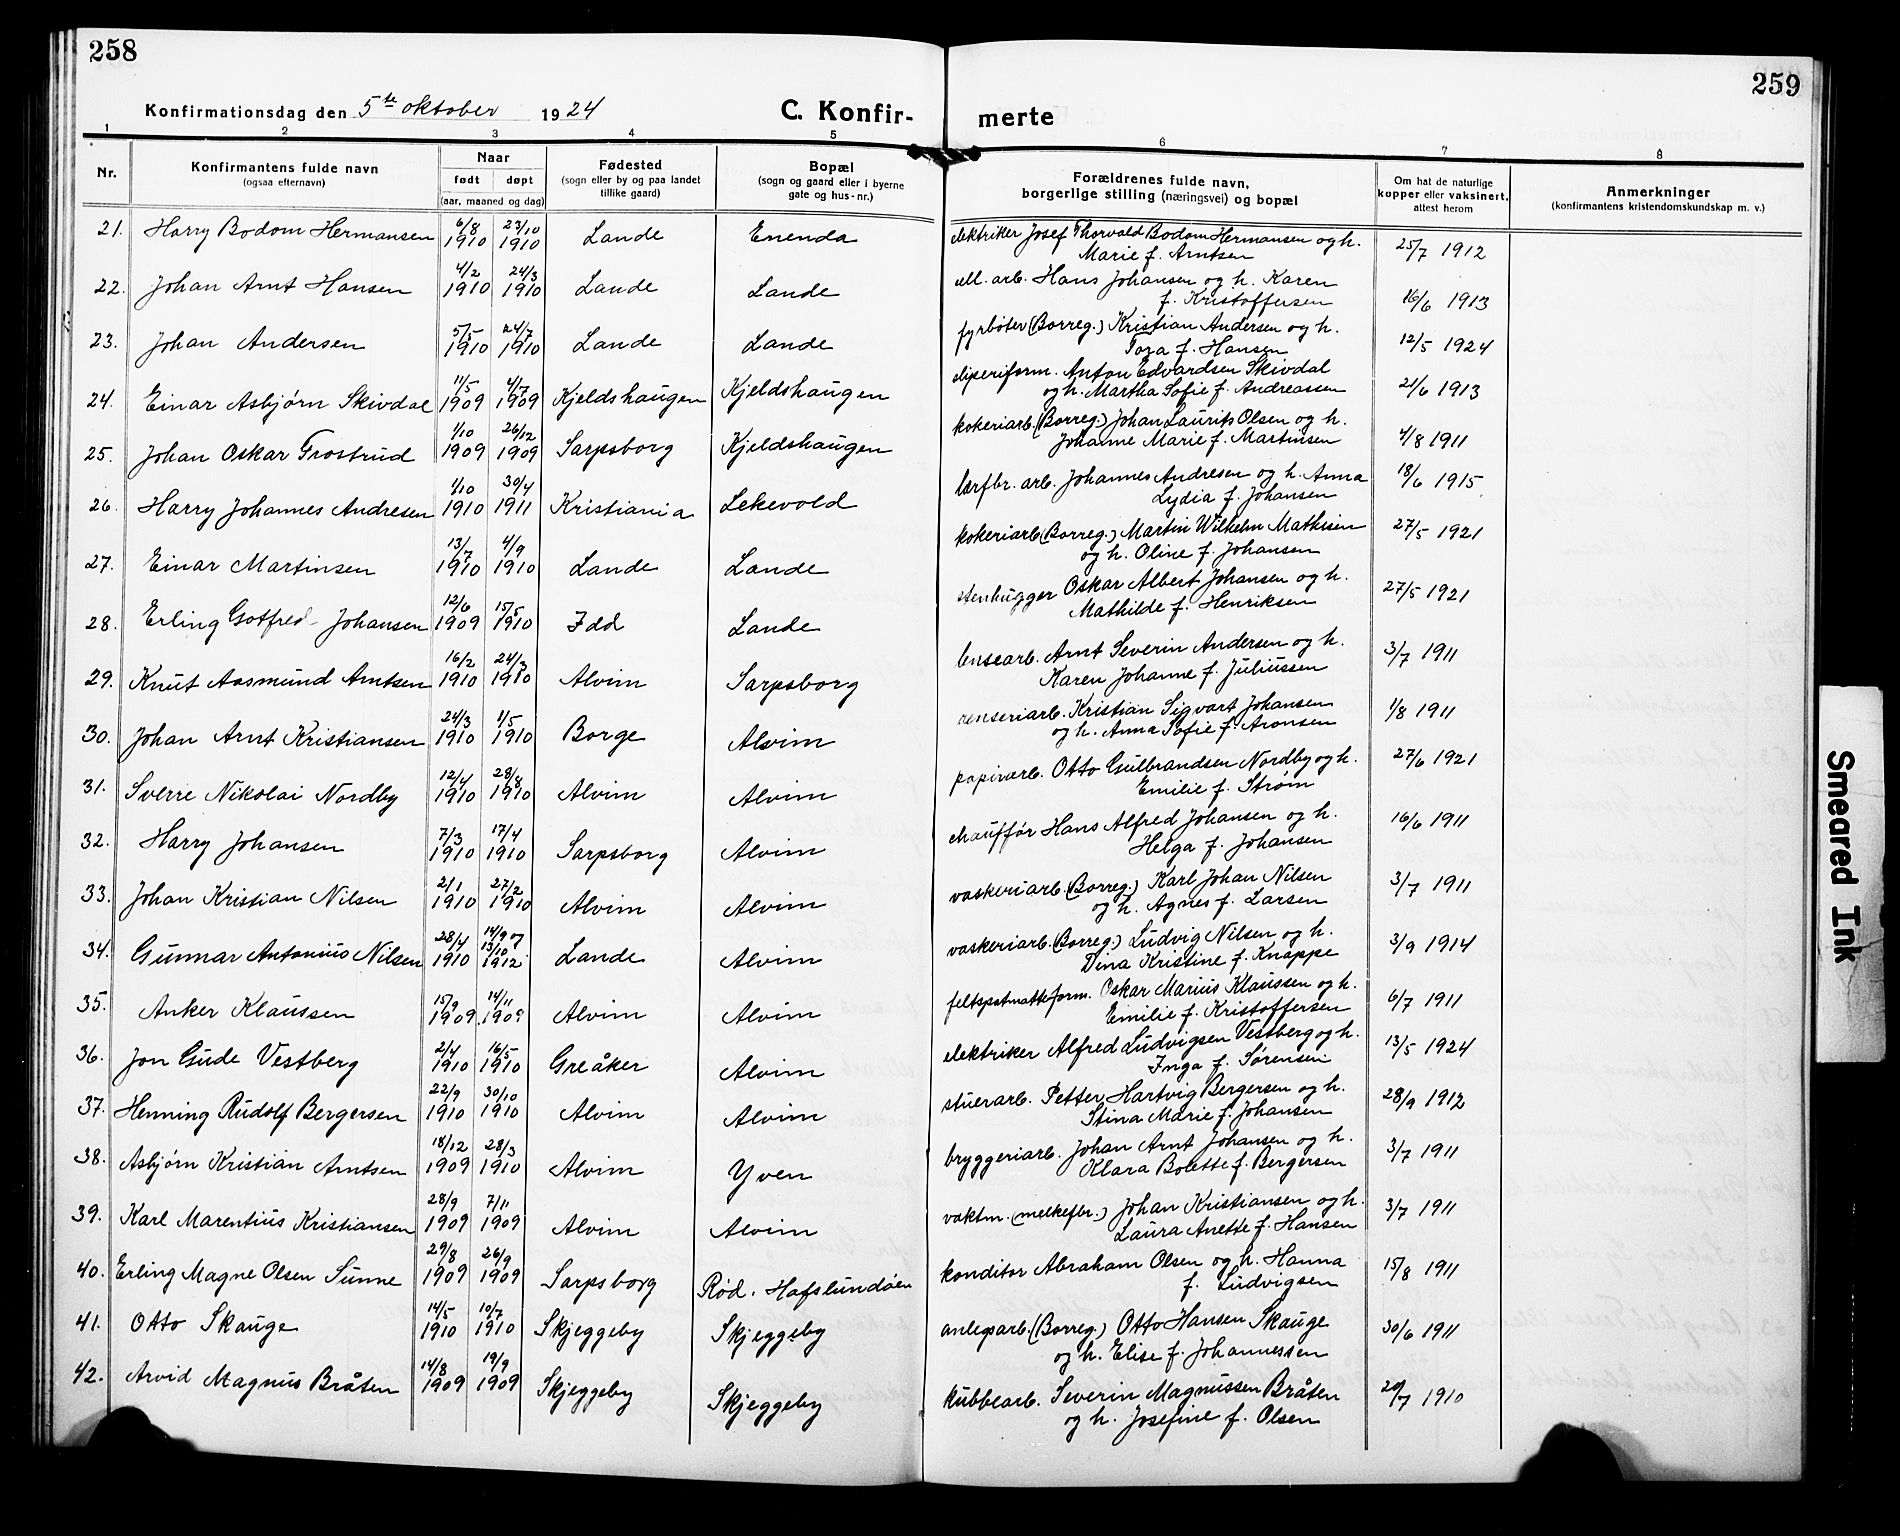 258
259
Konfirmationsdag den 5te oktober 1924
C. Konfir-
merte
1 2 3 4 5 6 7 8
Nr.
Konfirmantens fulde navn
(ogsaa efternavn)
Naar
født døpt
(aar, maaned og dag)
Fødested
(sogn eller by og paa landet
tillike gaard)
Bopæl
(sogn og gaard eller i byerne
gate og hus-nr.)
Forældrenes fulde navn,
borgerlige stilling (næringsvei) og bopæl
Om hat de naturlige
kopper eller vaksinert,
attest herom
Anmerkninger
(konfirmantens kristendomskundskap m. v.)
21. Harry Bodom Hermansen 6/8 1910 23/10 1910 Lande Enenda elektriker Josef Thorvald Bodom Hermansen og h.
Marie f. Arntsen 25/7 1912
22. Johan Arnt Hansen 4/2 1910 24/3 1910 Lande Lande cell. arb. Hans Johansen og h. Karen
f. Kristoffersen 16/6 1913
23. Johan Andersen 5/5 1910 24/7 1910 Lande Lande fyrbøter (Borreg.) Kristian Andersen og h.
Tora f. Hansen 12/5 1924
24. Einar Asbjørn Skivdal 11/5 1909 4/7 1909 Kjeldshaugen Kjeldshaugen sliperiform. Anton Edvardsen Skivdal
og h. Martha Sofie f. Andreassen 21/6 1913
25. Johan Oskar Frostrud 1/10 1909 26/12 1909 Sarpsborg Kjeldshaugen kokeriarb. (Borreg.) Johan Laurits Olsen og h.
Johanne Marie f. Martinsen 4/8 1911
26. Harry Johannes Andresen 1/10 1910 30/4 1911 Kristiania Lekevold lærfbr. arb. Johannes Andresen og h. Anna
Lydia f. Johansen 18/6 1915
27. Einar Martinsen 13/7 1910 4/9 1910 Lande Lande kokeriarb (Borreg.) Martin Wilhelm Mathisen
og h. Oline f. Johansen 27/5 1921
28. Erling Gotfred Johansen 12/6 1909 15/5 1910 Idd Lande stenhugger Oskar Albert Johansen og h.
Mathilde f. Henriksen 27/5 1921
29. Knut Aasmund Arntsen 16/2 1910 24/3 1910 Alvim Sarpsborg lensearb. Arnt Severin Andersen og h.
Karen Johanne f. Juliussen 3/7 1911
30. Johan Arnt Kristiansen 24/3 1910 1/5 1910 Borge Alvim renseriarb. Kristian Sigvart Johansen
og h. Anna Sofie f. Aronsen 1/8 1911
31. Sverre Nikolai Nordby 12/4 1910 28/8 1910 Alvim Alvim papirarb. Otto Gulbrandsen Nordby og h.
Emilie f. Strøm 27/6 1921
32. Harry Johansen 7/3 1910 17/4 1910 Sarpsborg Alvim chauffør Hans Alfred Johansen og h.
Helga f. Johansen 16/6 1911
33. Johan Kristian Nilsen 2/1 1910 27/2 1910 Alvim Alvim vaskeriarb. (Borreg.) Karl Johan Nilsen
og h. Agnes f. Larsen 3/7 1911
34. Gunnar Antonius Nilsen 28/4 1910 14/9 og 13/10 1912 Lande Alvim vaskeriarb. (Borreg.) Ludvig Nilsen og h.
Dina Kristine f. Knappe 3/9 1914
35. Anker Klaussen 15/9 1909 14/11 1909 Alvim Alvim feltspatmatteform. Oskar Marius Klaussen og h.
Emilie f. Kristoffersen 6/7 1911
36. Jon Gude Vestberg 2/4 1910 16/5 1910 Greåker Alvim elektriker Alfred Ludvigsen Vestberg og h.
Inga f. Sørensen 13/5 1924
37. Henning Rudolf Bergersen 22/9 1910 30/10 1910 Alvim Alvim stuerarb. Petter Hartvig Bergersen og h.
Stina Marie f. Johansen 28/9 1912
38. Asbjørn Kristian Arntsen 18/12 1909 28/3 1910 Alvim Yven bryggeriarb. Johan Arnt Johansen og h.
Klara Bolette f. Bergersen 3/7 1911
39. Karl Marentius Kristiansen 28/9 1909 7/11 1909 Alvim Alvim vaktm. (melkefbr.) Johan Kristiansen og h.
Laura Anette f. Hansen 3/7 1911
40. Erling Magne Olsen Sunne 29/8 1909 26/9 1909 Sarpsborg Rød. Hafslundøen konditor Abraham Olsen og h. Hanna
f. Ludvigsen 15/8 1911
41. Otto Skauge 14/5 1910 10/7 1910 Skjeggeby Skjeggeby anlegsarb. (Borreg.) Otto Hansen Skauge
og h. Elise f. Johannessen 30/6 1911
42. Arvid Magnus Bråten 14/8 1909 19/9 1909 Skjeggeby Skjeggeby kubbearb. Severin Magnussen Bråten
og h. Josefine f. Olsen 20/7 1910
Smeared Ink